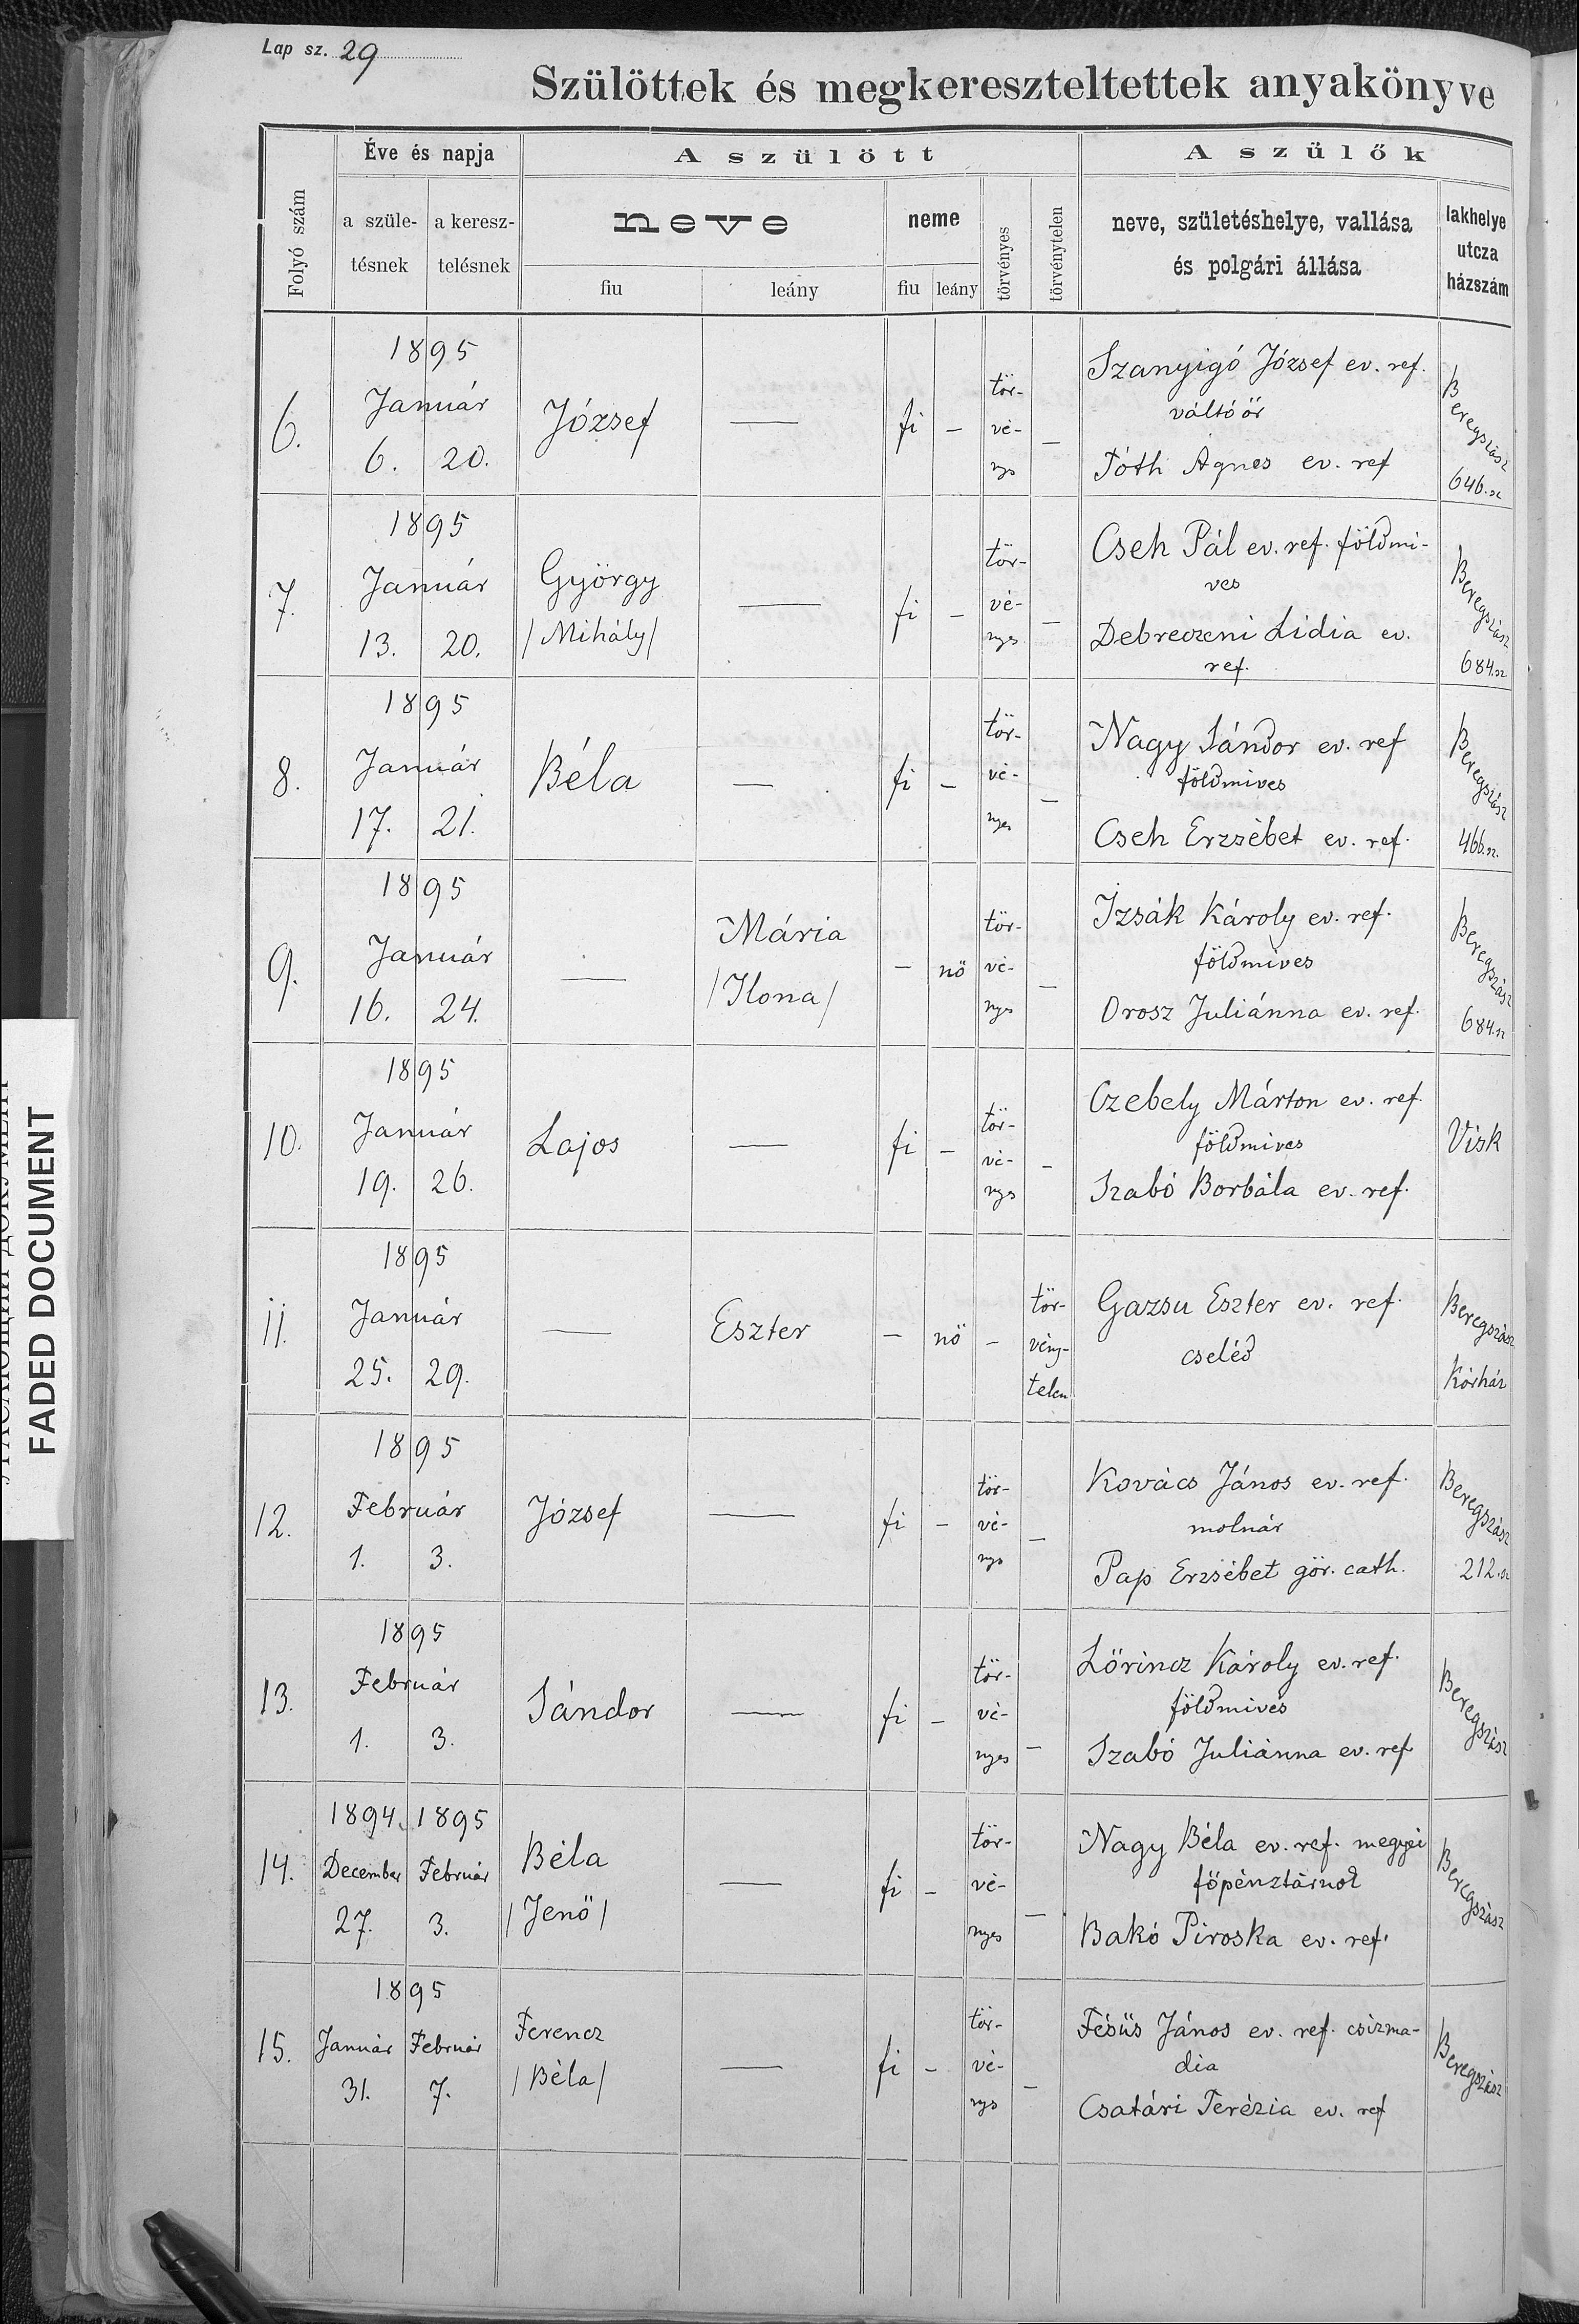 Lap sz. 29
Szülöttek és megkereszteltettek anyakönyve
Folyó szám
Éve és napja
a szüle-
tésnek
a keresz-
telésnek
A szülött
neve
fiu
leány
neme
fiu
leány
törvényes
törvénytelen
A szülők
neve, születéshelye, vallása
és polgári állása
lakhelye
utcza
házszám
6.
1895
Január
6. 20.
József
—
fi
—
tör-
vé-
nys
—
Szanyigó József ev. ref.
váltóőr
Tóth Ágnes ev. ref
Beregszász
646.sz
7.
1895
Január
13. 20.
György
/Mihály/
—
fi
—
tör-
vé-
nyes
—
Cseh Pál ev. ref. földmi-
ves
Debreczeni Lidia ev.
ref.
Beregszász
684.sz
8.
1895
Január
17. 21.
Béla
—
fi
—
tör-
vé-
nyes
—
Nagy Sándor ev. ref
földmives
Cseh Erzsébet ev. ref.
Beregszász
466.sz.
9.
1895
Január
16. 24.
—
Mária
/Ilona/
—
nö
tör-
vé-
nyes
—
Izsák Károly ev. ref.
földmives
Orosz Juliánna ev. ref.
Beregszász
684.sz
10.
1895
Január
19. 26.
Lajos
—
fi
—
tör-
vé-
nys
—
Czebely Márton ev. ref.
földmives
Szabó Borbála ev. ref.
Visk
11.
1895
Január
25. 29.
—
Eszter
—
nö
—
tör-
vény-
telen
Gazsu Eszter ev. ref.
cseléd
Beregszász
Kórház
12.
1895
Február
1. 3.
József
—
fi
—
tör-
vé-
nys
—
Kovács János ev. ref.
molnár
Pap Erzsébet gör. cath.
Beregszász
212.sz
13.
1895
Február
1. 3.
Sándor
—
fi
—
tör-
vé-
nyes
—
Lőrincz Károly ev. ref.
földmives
Szabó Juliánna ev. ref
Beregszász
14.
1894. 1895
December Február
27. 3.
Béla
/Jenő/
—
fi
—
tör-
vé-
nyes
—
Nagy Béla ev. ref. megyei
főpénztárnok
Bakó Piroska ev. ref.
Beregszász
15.
1895
Január Február
31. 7.
Ferencz
/Béla/
—
fi
—
tör-
vé-
nys
—
Fésüs János ev. ref. csizma-
dia
Csatári Terézia ev. ref
Beregszász
FADED DOCUMENT